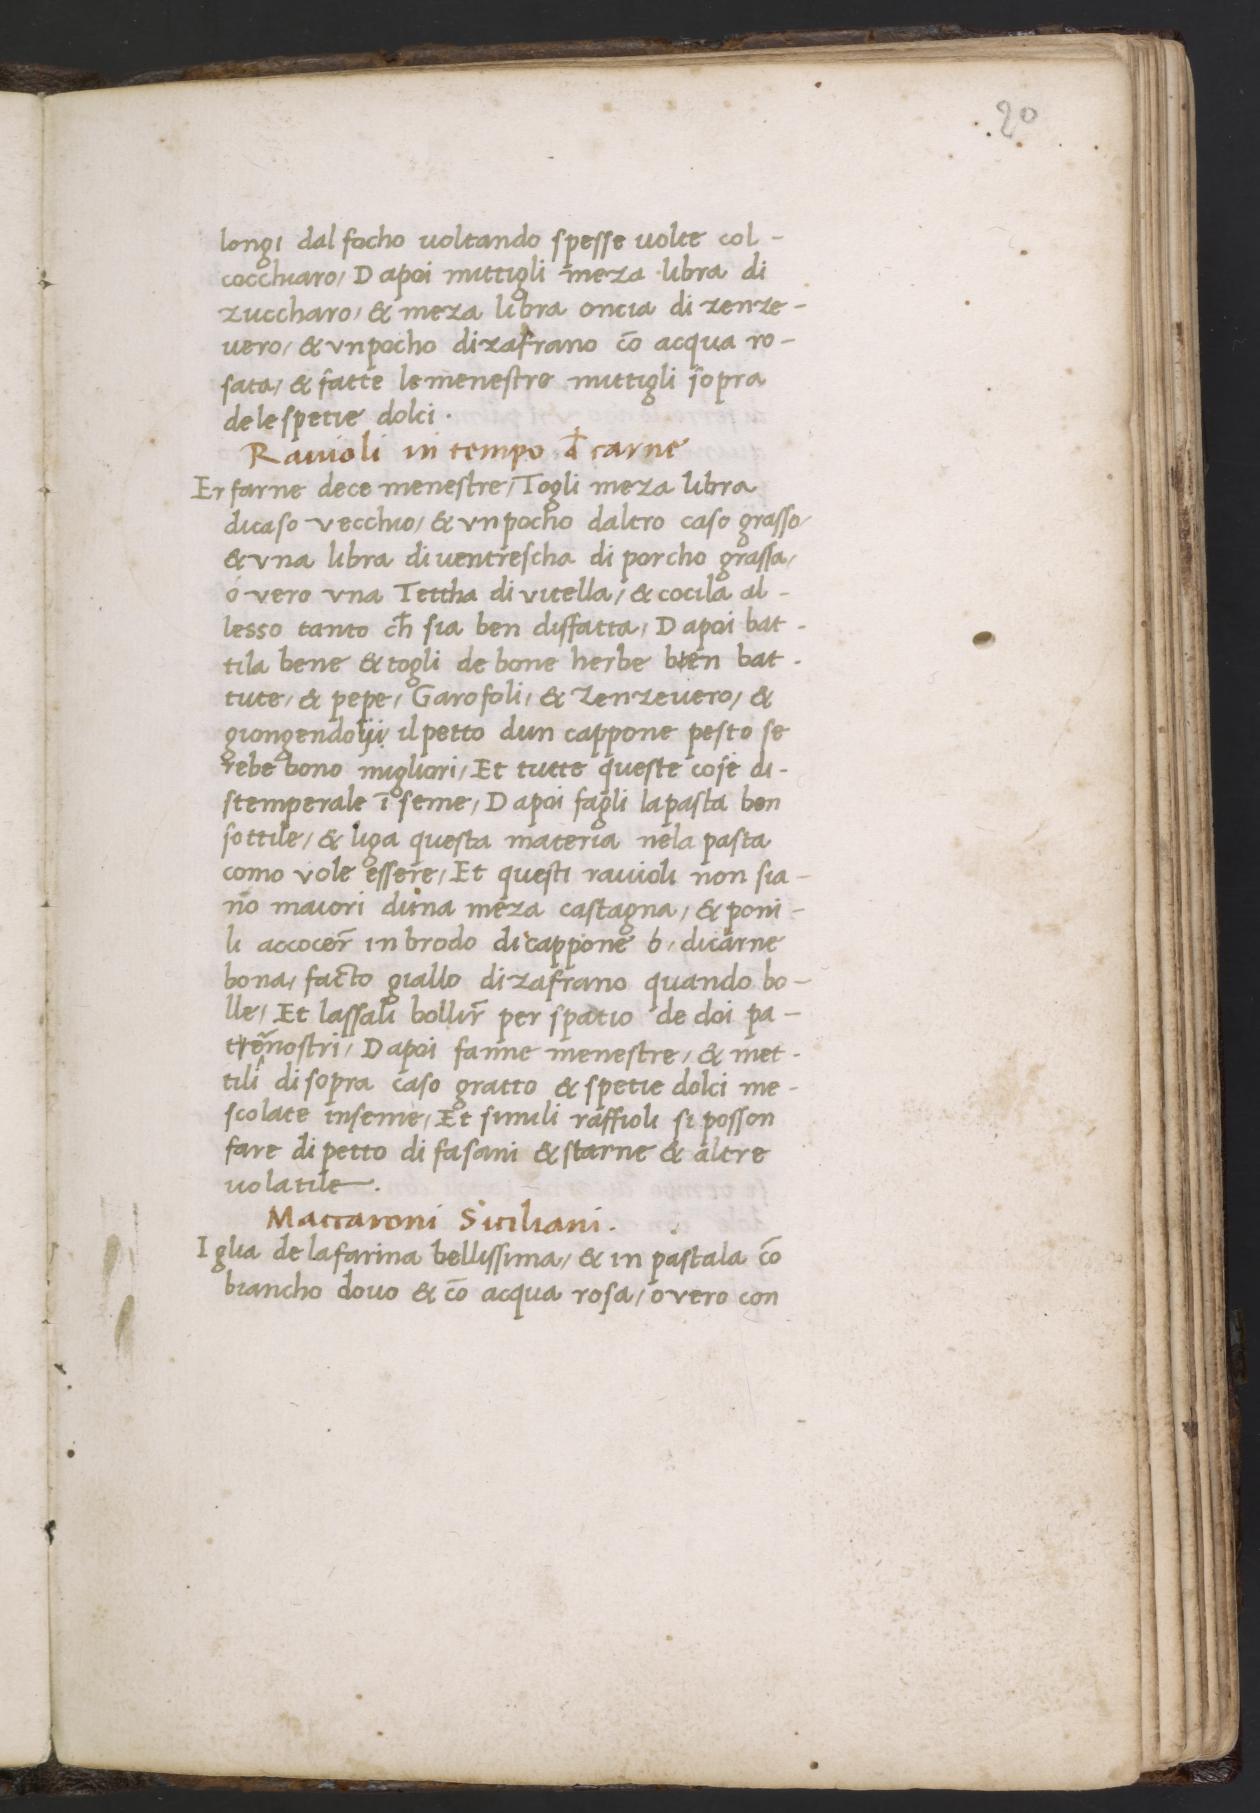 20
longi dal focho uoltando spesse uolte col -
cocchiaro, Dapoi mittigli meza libra di
zuccharo, & meza libra oncia di zenze -
uero, & vn pocho di zafrano cō acqua ro -
sata, & fatte le menestre mittigli sopra
de le spetie dolci .
Rauioli in tempo đ carne
Er farne dece menestre, Togli meza libra
di caso vecchio, & vn pocho daltro caso grasso,
& vna libra di uentrescha di porcho grassa,
o vero vna Tettha di vitella, & cocila al -
lesso tanto ch̄ sia ben disfatta, Dapoi bat -
tila bene & togli de bone herbe bien bat -
tute, & pepe, Garofoli, & Zenzeuero, &
giongendoui il petto dun cappone pesto se
rebe bono migliori, Et tutte queste cose di -
stemperale ī seme, Dapoi fagli la pasta ben
sottile, & liga questa materia nela pasta
como vole essere, Et questi rauioli non sia -
no maiori duna meza castagna, & poni -
li accocer̄ in brodo di cappone o, di carne
bona, facto giallo di zafrano quando bo -
lle, Et lassali bollir̄ per spatio de doi pa -
tren̄ostri, Dapoi fanne menestre, & met -
tili di sopra caso gratto & spetie dolci me -
scolate inseme, Et simili raffioli si posson
fare di petto di fasani & starne & altre
uolatile .
Maccaroni Siciliani .
Iglia de la farina bellissima, & in pastala cō
biancho douo & cō acqua rosa, o vero con